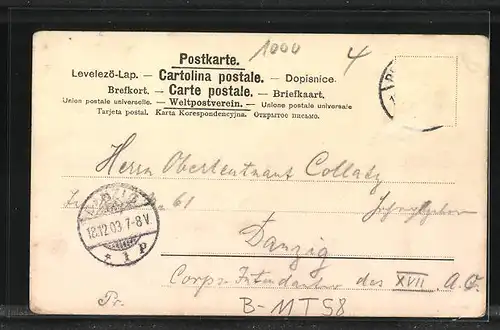 Postkarte.
1000
4
Levelező-Lap. — Cartolina postale. — Dopisnice.
Brefkort. — Carte postale. — Briefkaart.
Union postale universelle. — Weltpostverein. — Unione postale universale
Tarjeta postal. Karta Korespondencyjna. Открытое письмо.
Herrn Oberleutnant Collatz
61
12.12.03 7-8V.
* 1 P
Danzig
Corps-Intendantur des XVII. A.C.
Pr.
B-MT58